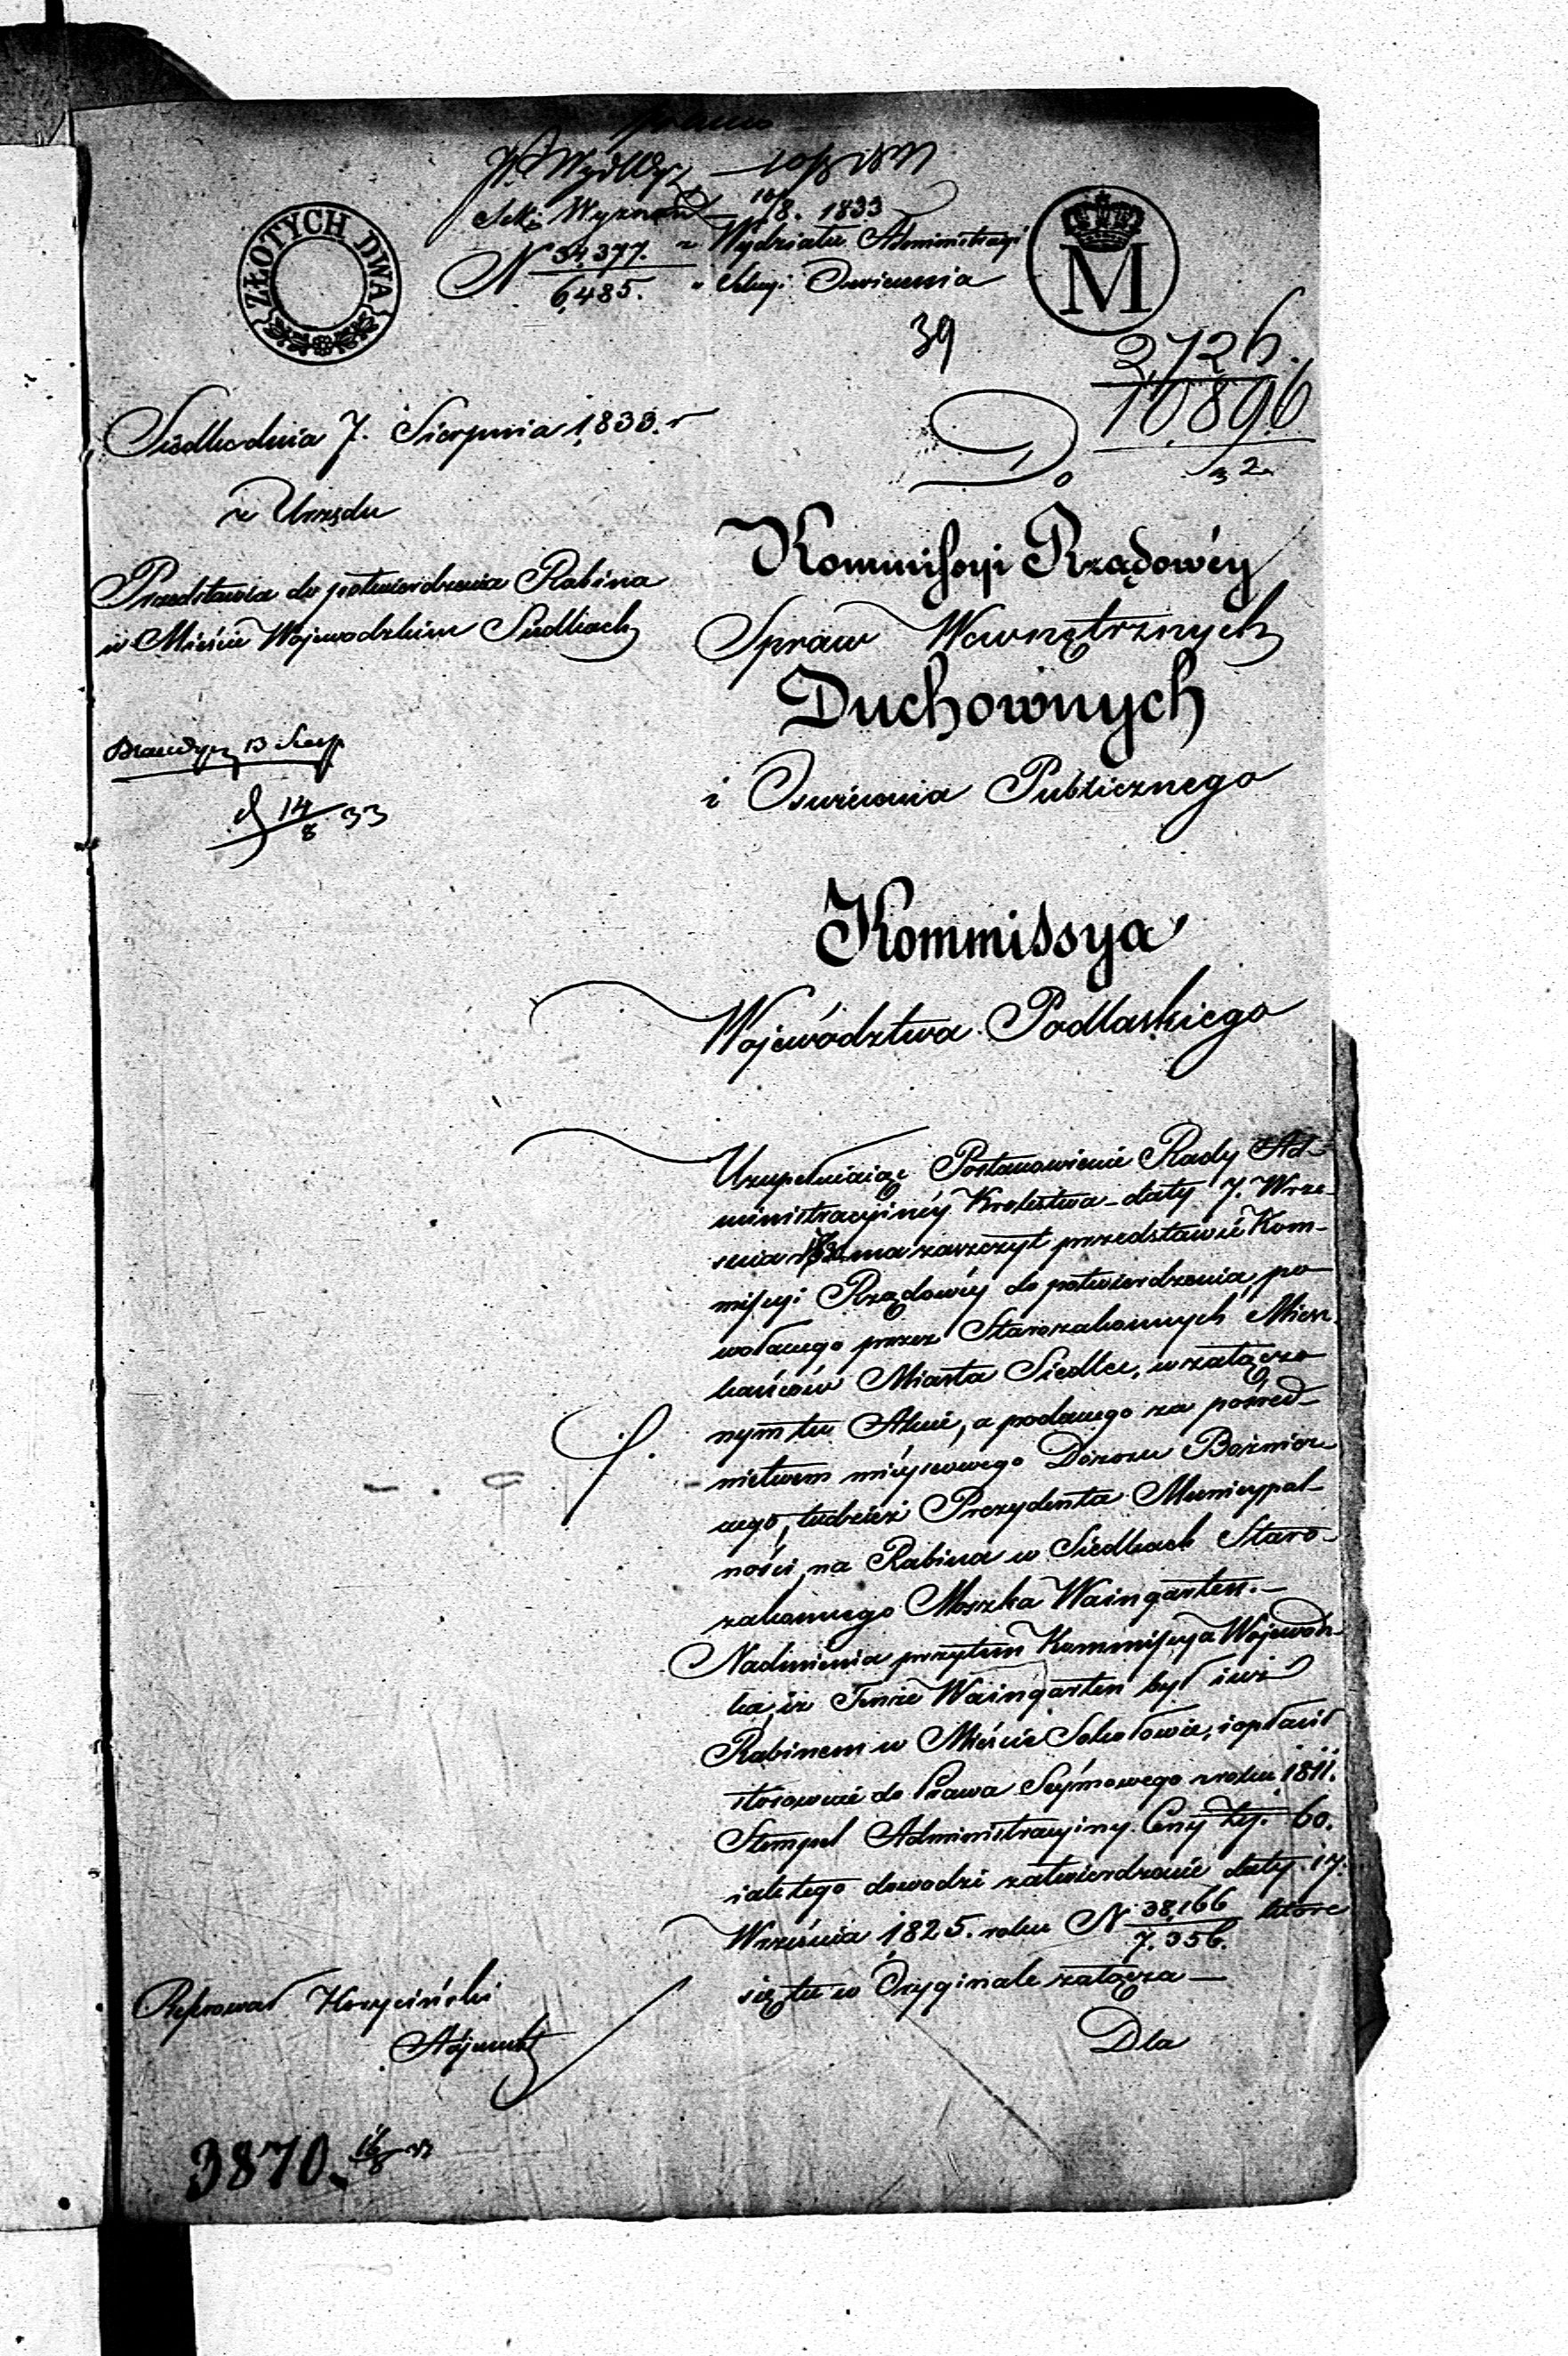 10/8 1833
Sek: Wyznań 10/8. 1833
N 34,377. z Wydziału Administracyi
6,485. Sekcyi Oswiecenia
ZŁOTYCH DWA
M
39
2,726.
10.896
32
Siedlce dnia 7. Sierpnia 1,833. r
z Urzędu
Przedstawia do potwierdzenia Rabina
w Mieście Wojewodzkim Siedlcach
13 Sierp
14/8 33
Do
Kommissyi Rządowéy
Spraw Wewnętrznych
Duchownych
i Oswiecenia Publicznego
Kommissya
Województwa Podlaskiego
Uzupełniaiąc Postanowienie Rady Ad-
ministracyinéy Krolestwa daty 7. Wrze-
snia ma zaszczyt przedstawić Kom-
missyi Rządowéy do potwierdzenia, po-
wołanego przez Starozakonnych Miesz-
kańców Miasta Siedlce, w załączo-
nym tu Akcie, a podanego za pośred-
nictwem mieyscowego Dozoru Bożnicz-
nego, tudzież Prezydenta Municypal-
ności, na Rabina w Siedlcach Staro-
zakonnego Moszka Waingarten.—
Nadmienia przytem Kommissya Wojewodz-
ka, iż Tenże Waingarten był iuż
Rabinem w Mieście Sokołowie, i opłacił
stosownie do Prawa Seymowego z roku 1811.
Stempel Administracyiny Ceny Złp. 60.
iak tego dowodzi zatwierdzenie daty 17.
Września 1825. roku N 38,166 / 7.356. które
się tu w Oryginale załącza —
Dla
Referował Krzyciński
Adjunkt
3870. 16/8 33